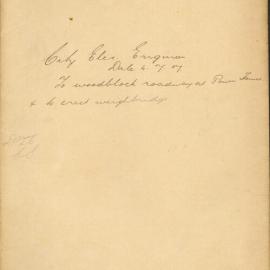 City Elec. Engineer
Date 4. 7. 07
To woodblock roadway at Power House
& to erect weighbridge